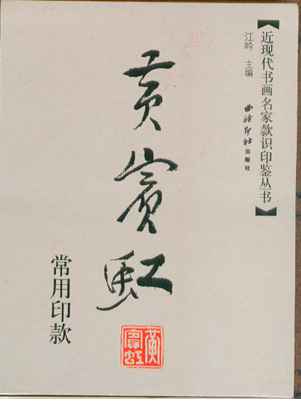 【近现代书画名家款识印鉴丛书】
江吟 主编
西泠印社出版社
黄宾虹
常用印款
黄宾虹